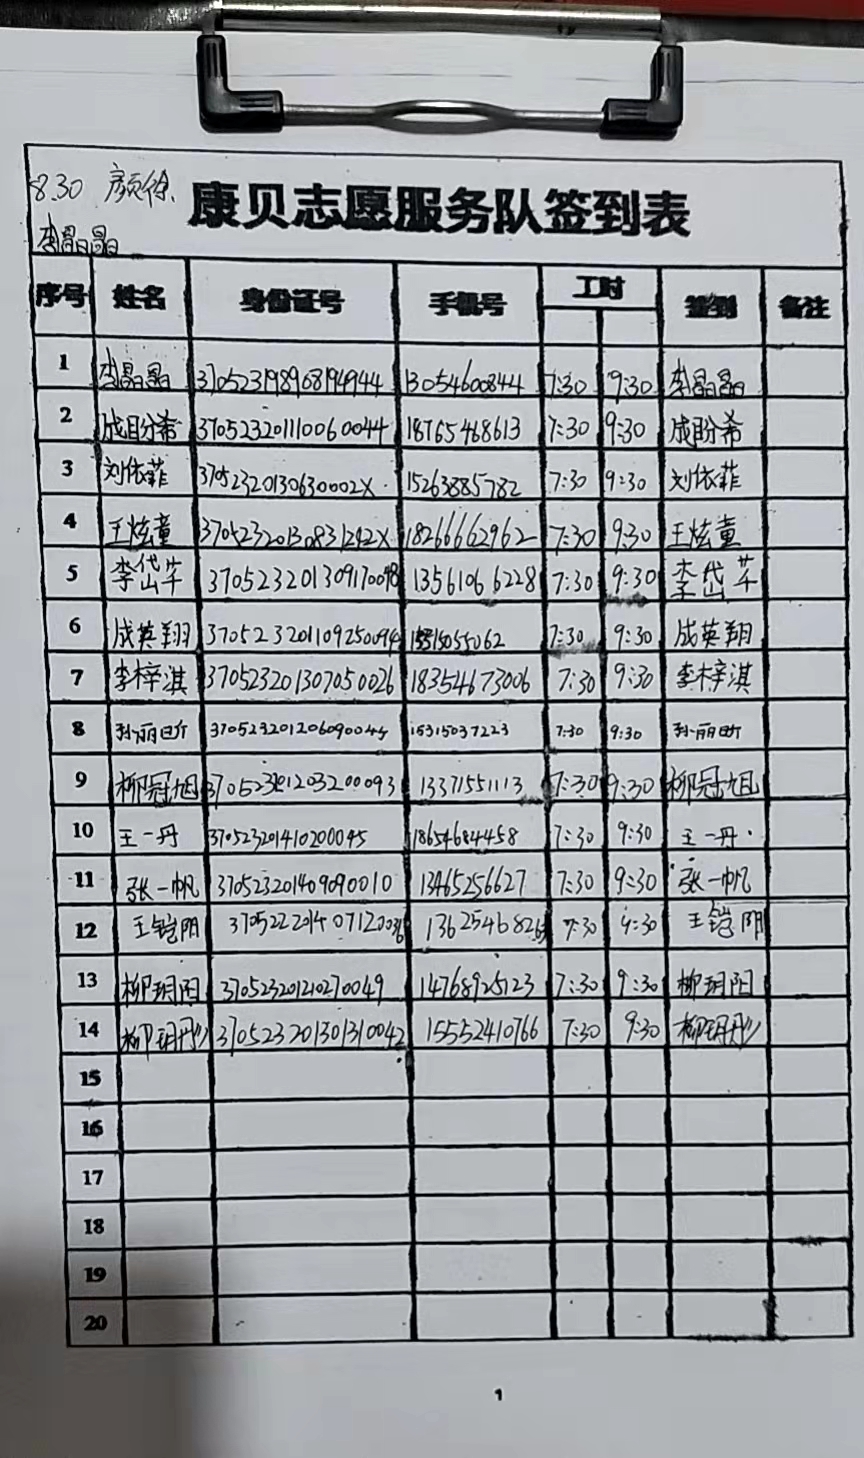 8.30 颜徐
康贝志愿服务队签到表
李晶晶
序号 姓名 身份证号 手机号 工时 签到 备注
1 李晶晶 370523198968194944 13054600844 7:30 9:30 李晶晶
2 成盼希 370523201110060044 18765468613 7:30 9:30 成盼希
3 刘依菲 37052320130630002X 15263885782 7:30 9:30 刘依菲
4 王炫童 37052320130831242X 18266662962 7:30 9:30 王炫童
5 李岱芊 3705232013091700 13561066228 7:30 9:30 李岱芊
6 成英翔 370523201109250094 7:30 9:30 成英翔
7 李梓淇 370523201307050026 18354673006 7:30 9:30 李梓淇
8 孙丽昕 370523201206090044 15315037223 7:30 9:30 孙丽昕
9 柳冠旭 370523201203200093 13371551113 7:30 9:30 柳冠旭
10 王一丹 370523201410200045 18654684458 7:30 9:30 王一丹
11 张一帆 370523201409090010 13465256627 7:30 9:30 张一帆
12 王铠阴 3705222014071200 136254682 7:30 9:30 王铠阴
13 柳玥阳 370523201210270049 14768925123 7:30 9:30 柳玥阳
14 柳玥彤 370523201301310042 15552410766 7:30 9:30 柳玥彤
15
16
17
18
19
20
1